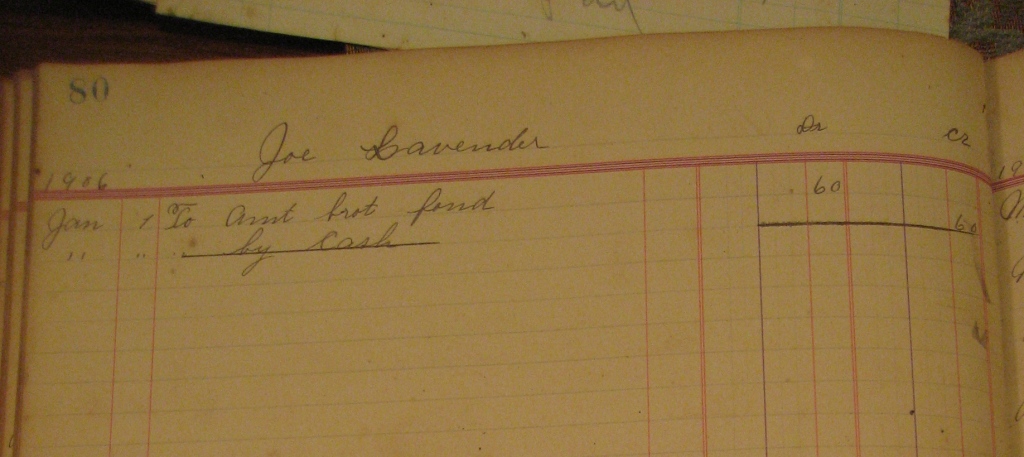 Pay
80
Joe Lavender Dr Cr
1906
Jan 1 To Amt brot fond 60
" " by Cash 60
19